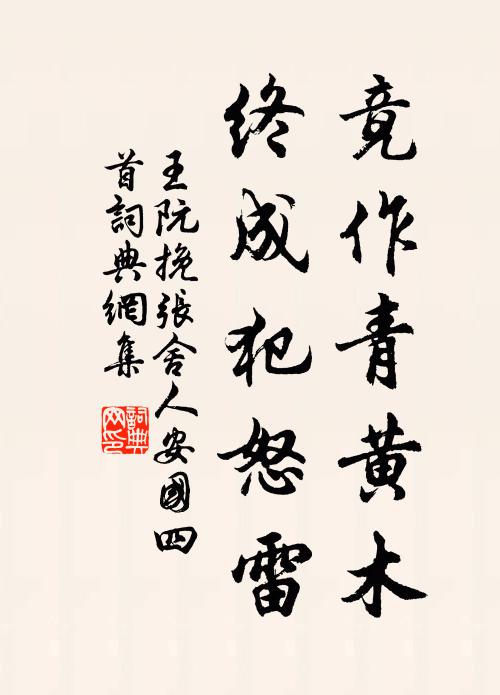 竟作青黄木
终成犯怒雷
王阮挽張舍人安國四
首詞典網集
詞典
网印